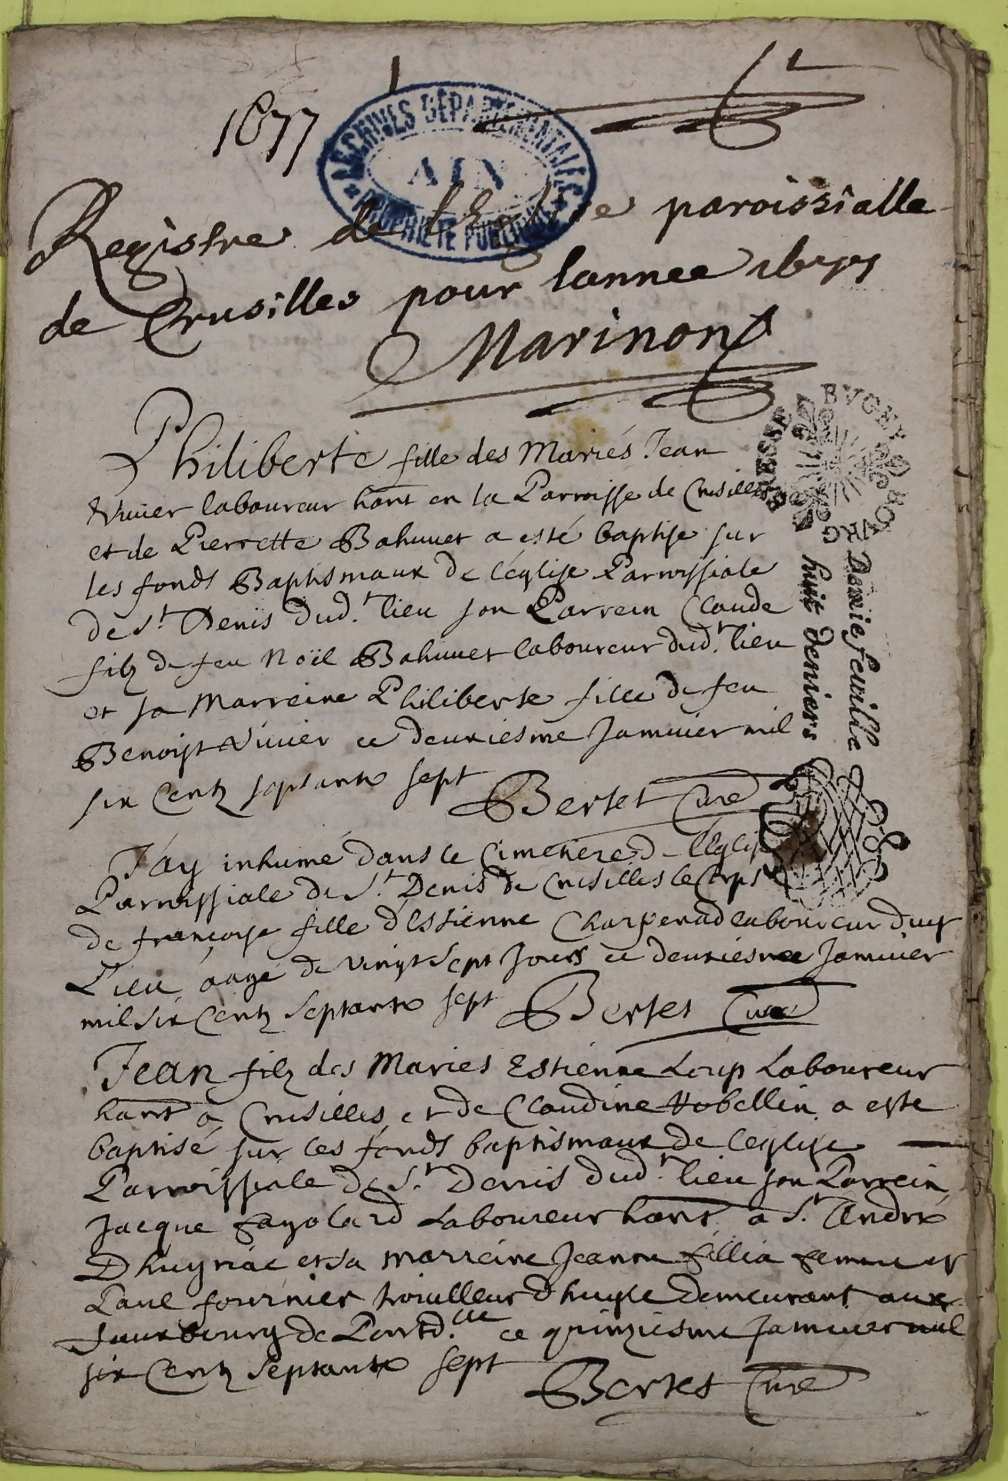 1677
ARCHIVES DÉPARTEMENTALES
AIN
PROPRIÉTÉ PUBLIQUE
Registre de l'Eglise paroissialle
de Crusilles pour lannee 1677
Marinon
Philiberte fille des Mariés Jean
Vivier laboureur hant en la Parroisse de Crusilles
et de Pierrette Bahuvet a esté baptise sur
les fonds Baptismaux de l'église Parroissiale
de St Denis dudt lieu son Parrein Claude
filz de feu Noël Bahuvet laboureur dudt lieu
et sa Marreine Philiberte fille de feu
Benoist Vivier ce deuxiesme Janvier mil
six Centz septante sept
Bertet Curé
BRESSE BVGEY
Demie feuille
huit deniers
J'ay inhumé dans le Cimetiere de l'Église
Parroissiale de St Denis de Crusilles le Corps
de françoise fille d'Estienne laboureur dud
Lieu aagé de vingt sept Jours ce deuxiesme Janvier
mil six Centz Septante sept Bertet Curé
Jean filz des Mariés Estienne Loup Laboureur
hant a Crusilles et de Claudine a esté
baptisé sur les fonds baptismaux de leglise
Parroissiale de St Denis dudt lieu son Parrein
Jacque Laboureur hant a St André
Dhuyriac et sa marreine Jeanne fillia femme
Paul fournier d'huyle demeurant aux
fauxbourg de Pontd.lle ce quinziesme Janvier mil
six Centz Septante sept
Bertet Curé